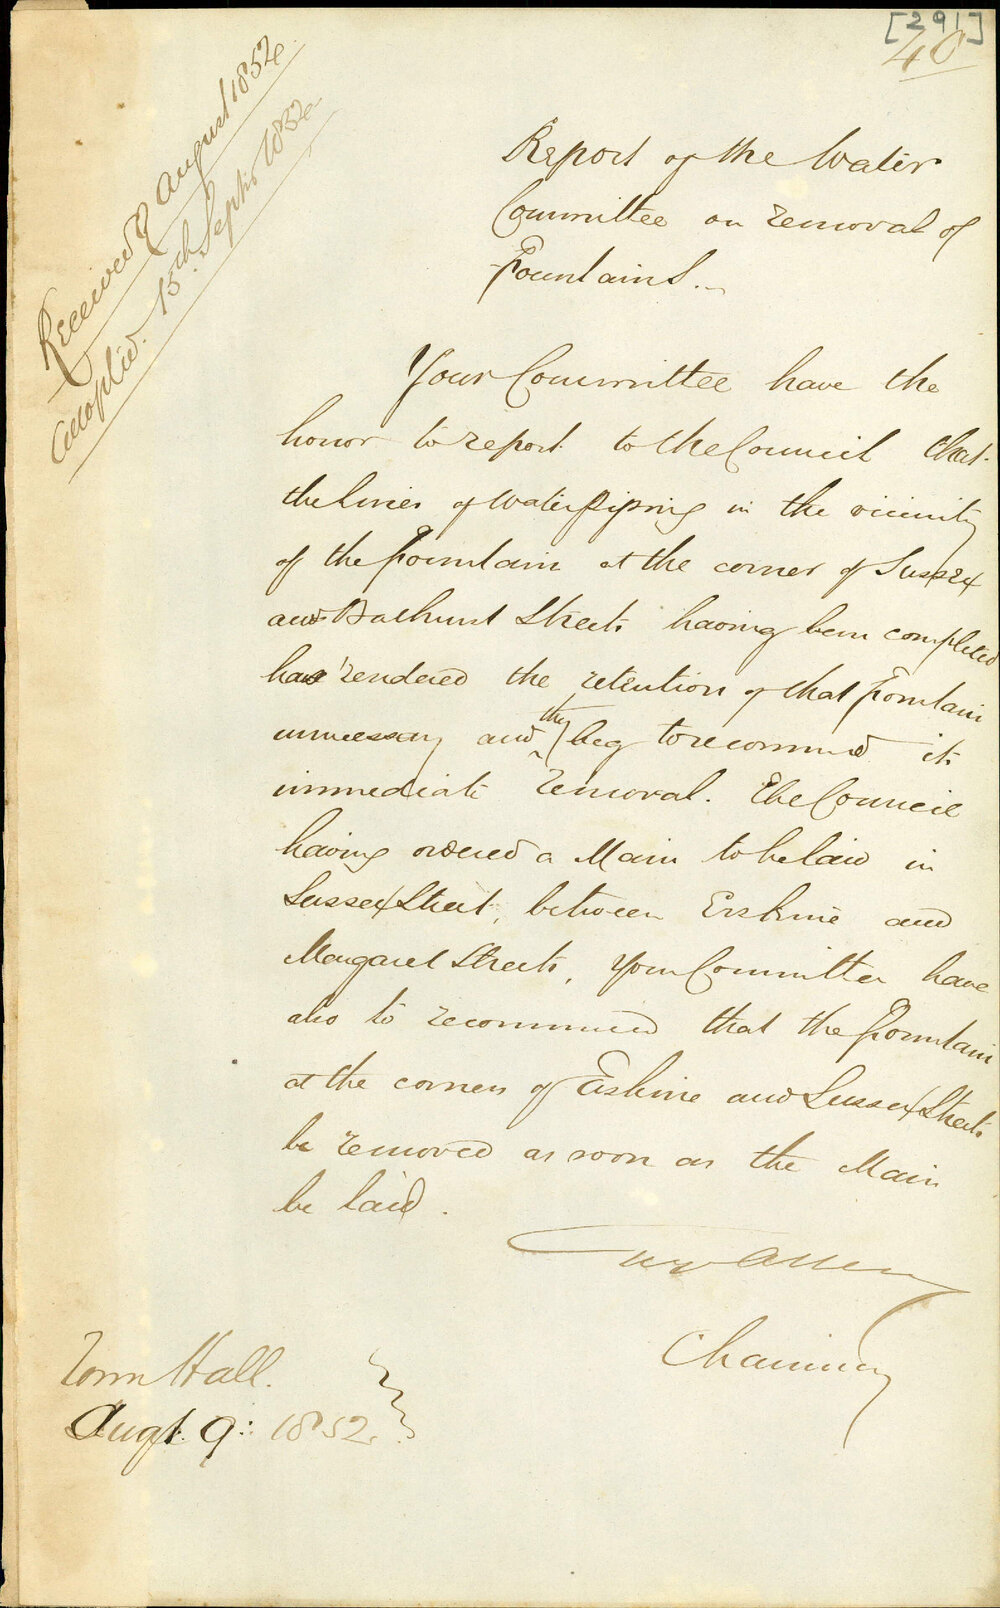 [291]
40
Received 9 August 1852
Adopted. 13th Septr 1852
Report of the Water
Committee on removal of
Fountains.
Your Committee have the
honor to report to the Council that
the lines of water piping in the vicinity
of the fountain at the corner of Sussex
and Bathurst Streets having been completed
has rendered the retention of that fountain
unnecessary and they beg to recommend its
immediate removal. The Council
having ordered a Main to be laid in
Sussex Street, between Erskine and
Margaret Streets, Your Committee have
also to recommend that the fountain
at the corners of Erskine and Sussex Streets
be removed as soon as the Main
be laid.
Allen
Chairman
Town Hall.
Augt. 9: 1852.